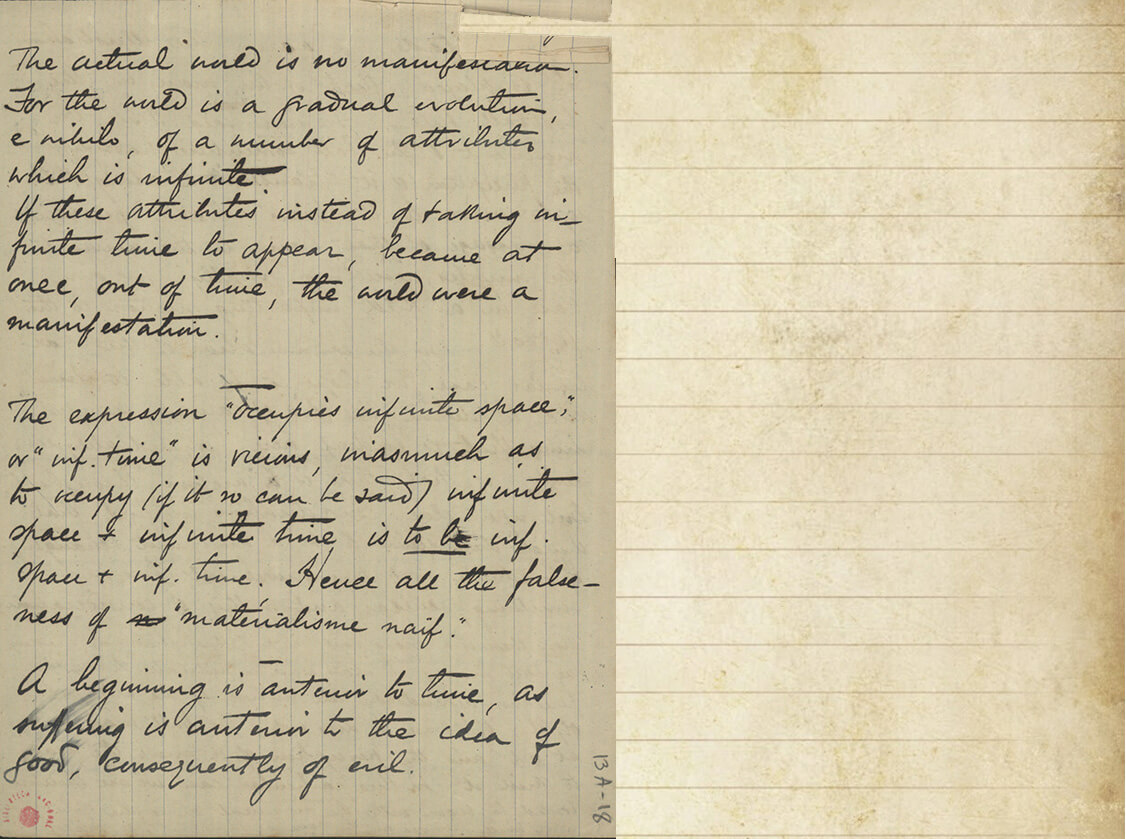 The actual world is no manifestation.
For the world is a gradual evolution,
e nihilo, of a number of attributes
which is infinite.
If these attributes instead of taking in-
finite time to appear, became at
once, out of time, the world were a
manifestation.
The expression "occupies infinite space",
or "inf. time" is vicious, inasmuch as
to occupy (if it so can be said) infinite
space + infinite time, is to be inf.
space + inf. time. Hence all the false-
ness of "materialisme naif."
A beginning is anterior to time, as
suffering is anterior to the idea of
good, consequently of evil.
13A-18